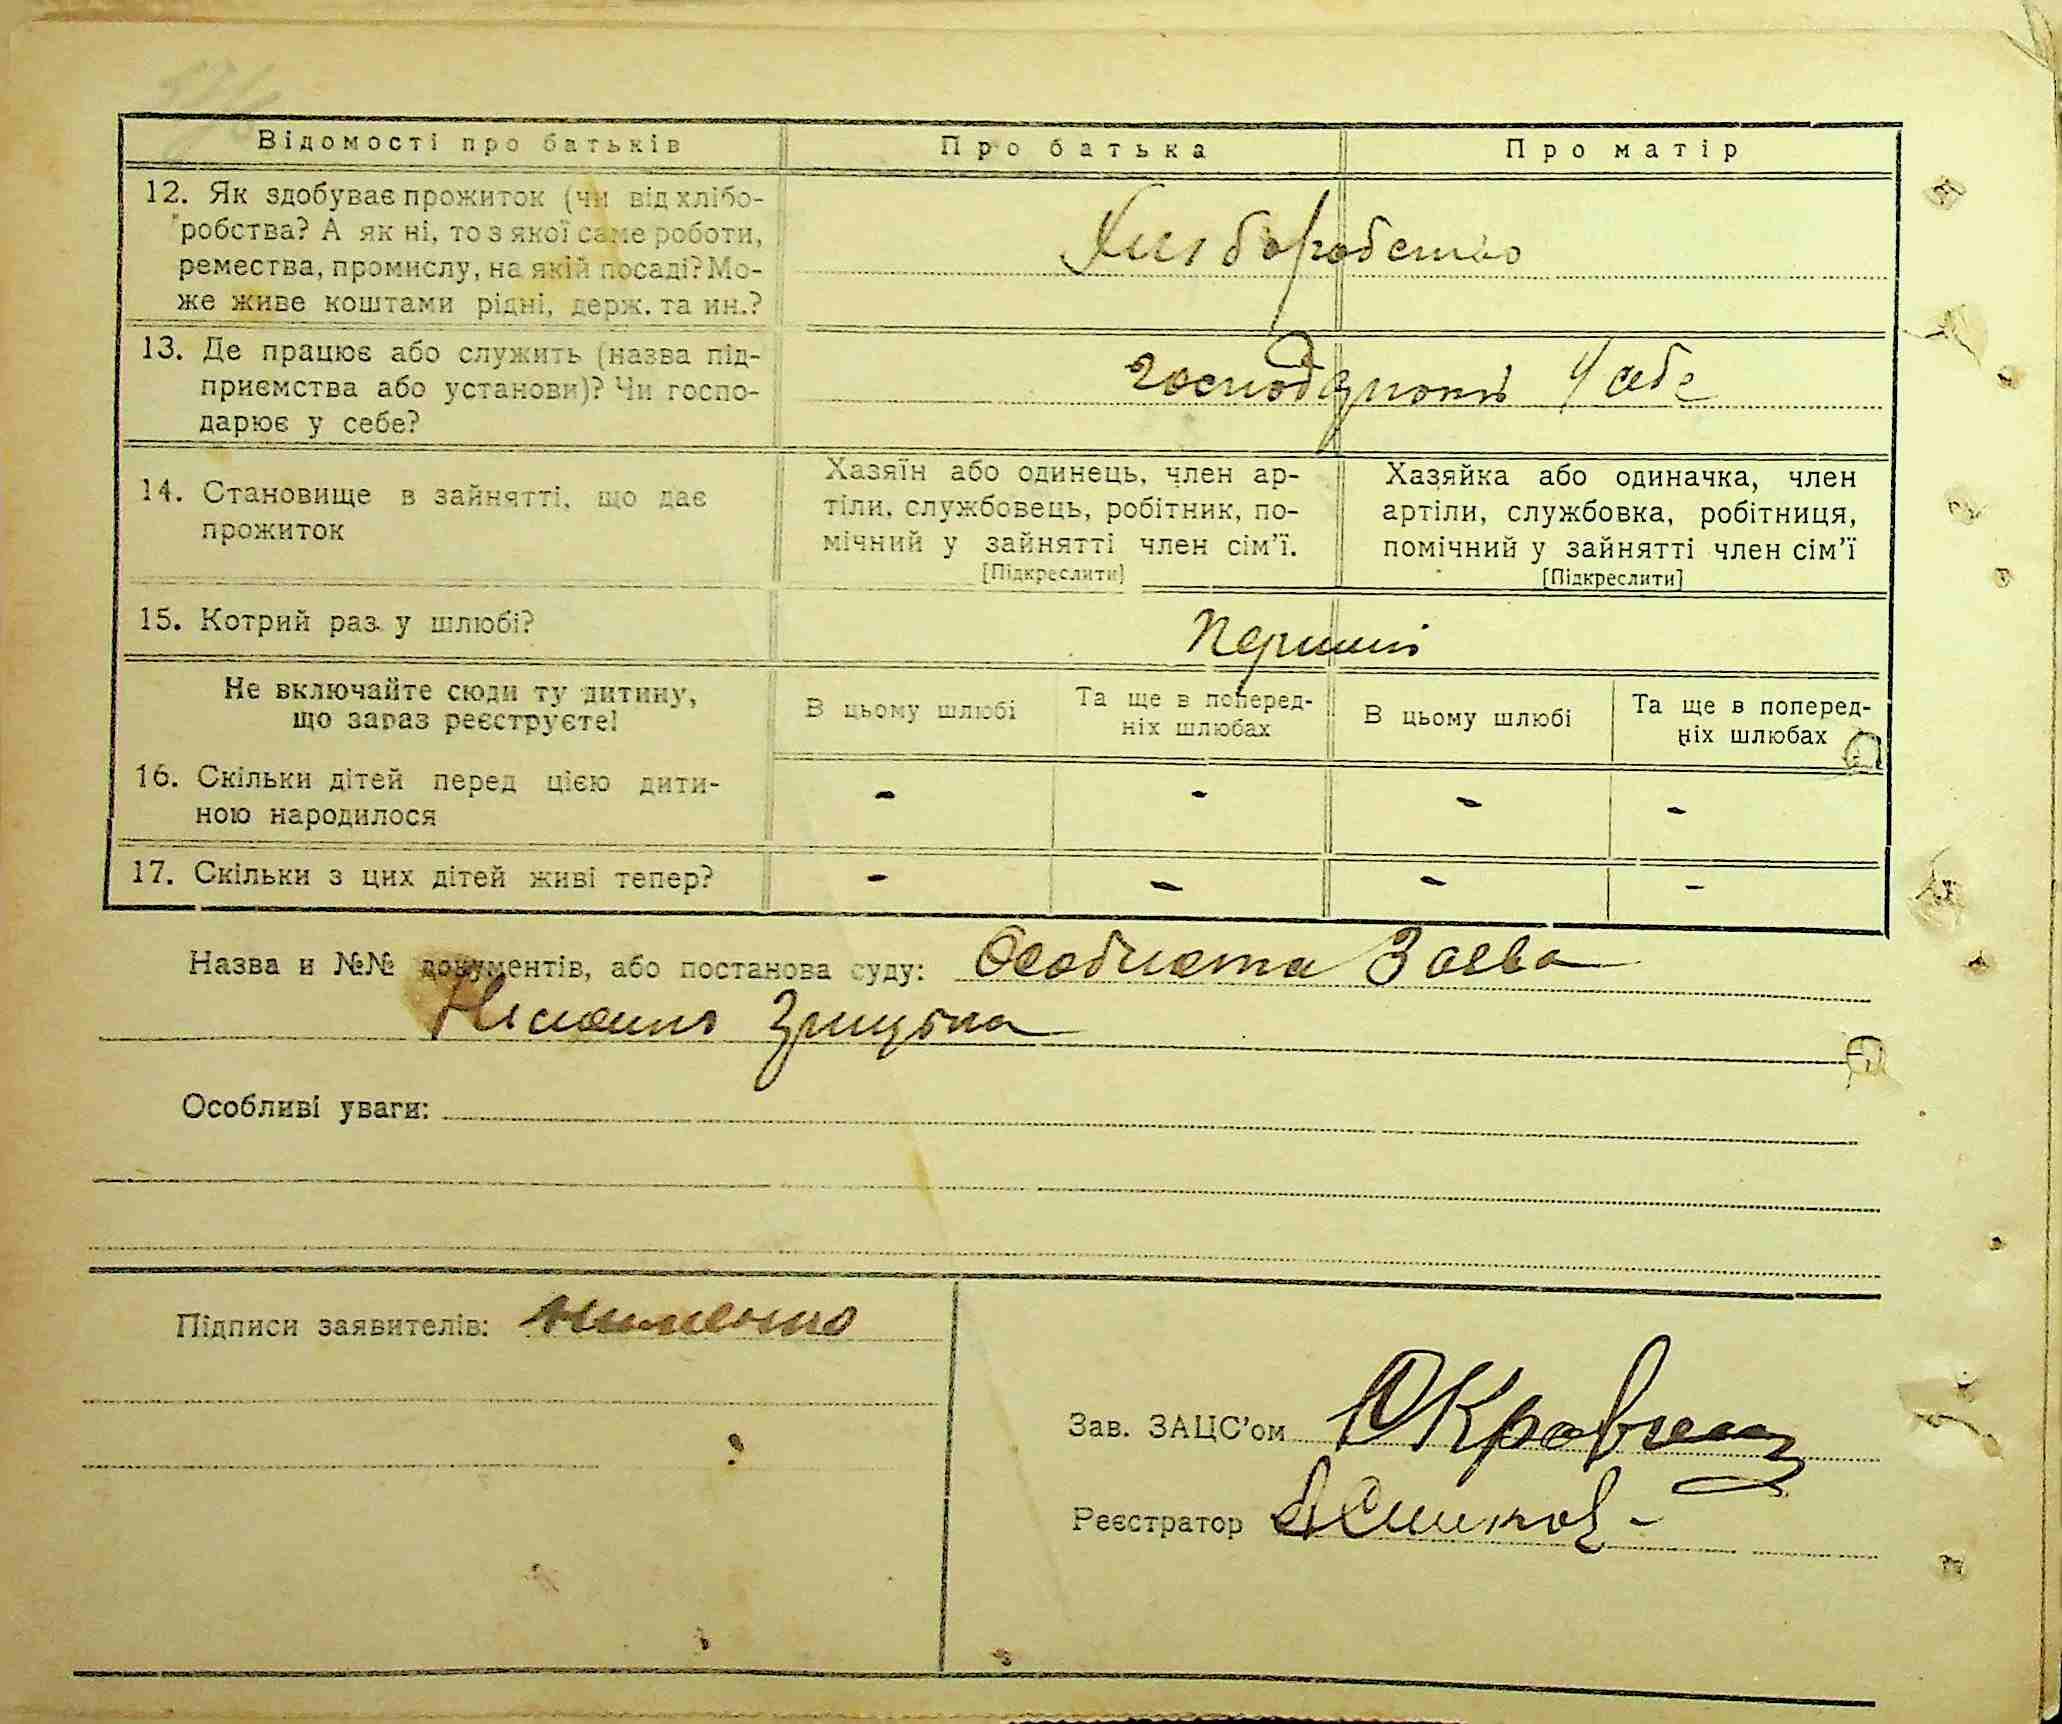 Відомості про батьків
Про батька
Про матір
12. Як здобуває прожиток (чи від хлібо-
робства? А як ні, то з якої саме роботи,
ремества, промислу, на якій посаді? Мо-
же живе коштами рідні, держ. та ин.?
Хлiборобство
13. Де працює або служить (назва під-
приємства або установи)? Чи госпо-
дарює у себе?
у себе
14. Становище в зайнятті, що дає
прожиток
Хазяїн або одинець, член ар-
тіли, службовець, робітник, по-
мічний у зайнятті член сім'ї.
[Підкреслити]
Хазяйка або одиначка, член
артіли, службовка, робітниця,
помічний у зайнятті член сім'ї
[Підкреслити]
15. Котрий раз у шлюбі?
Перший
Не включайте сюди ту дитину,
що зараз реєструєте!
В цьому шлюбі
Та ще в поперед-
ніх шлюбах
В цьому шлюбі
Та ще в поперед-
ніх шлюбах
16. Скільки дітей перед цією дити-
ною народилося
- - - -
17. Скільки з цих дітей живі тепер?
- - - -
Назва и №№ документів, або постанова суду: Особиста Заява
Особливі уваги:
Підписи заявителів:
Зав. ЗАЦС'ом
Реєстратор